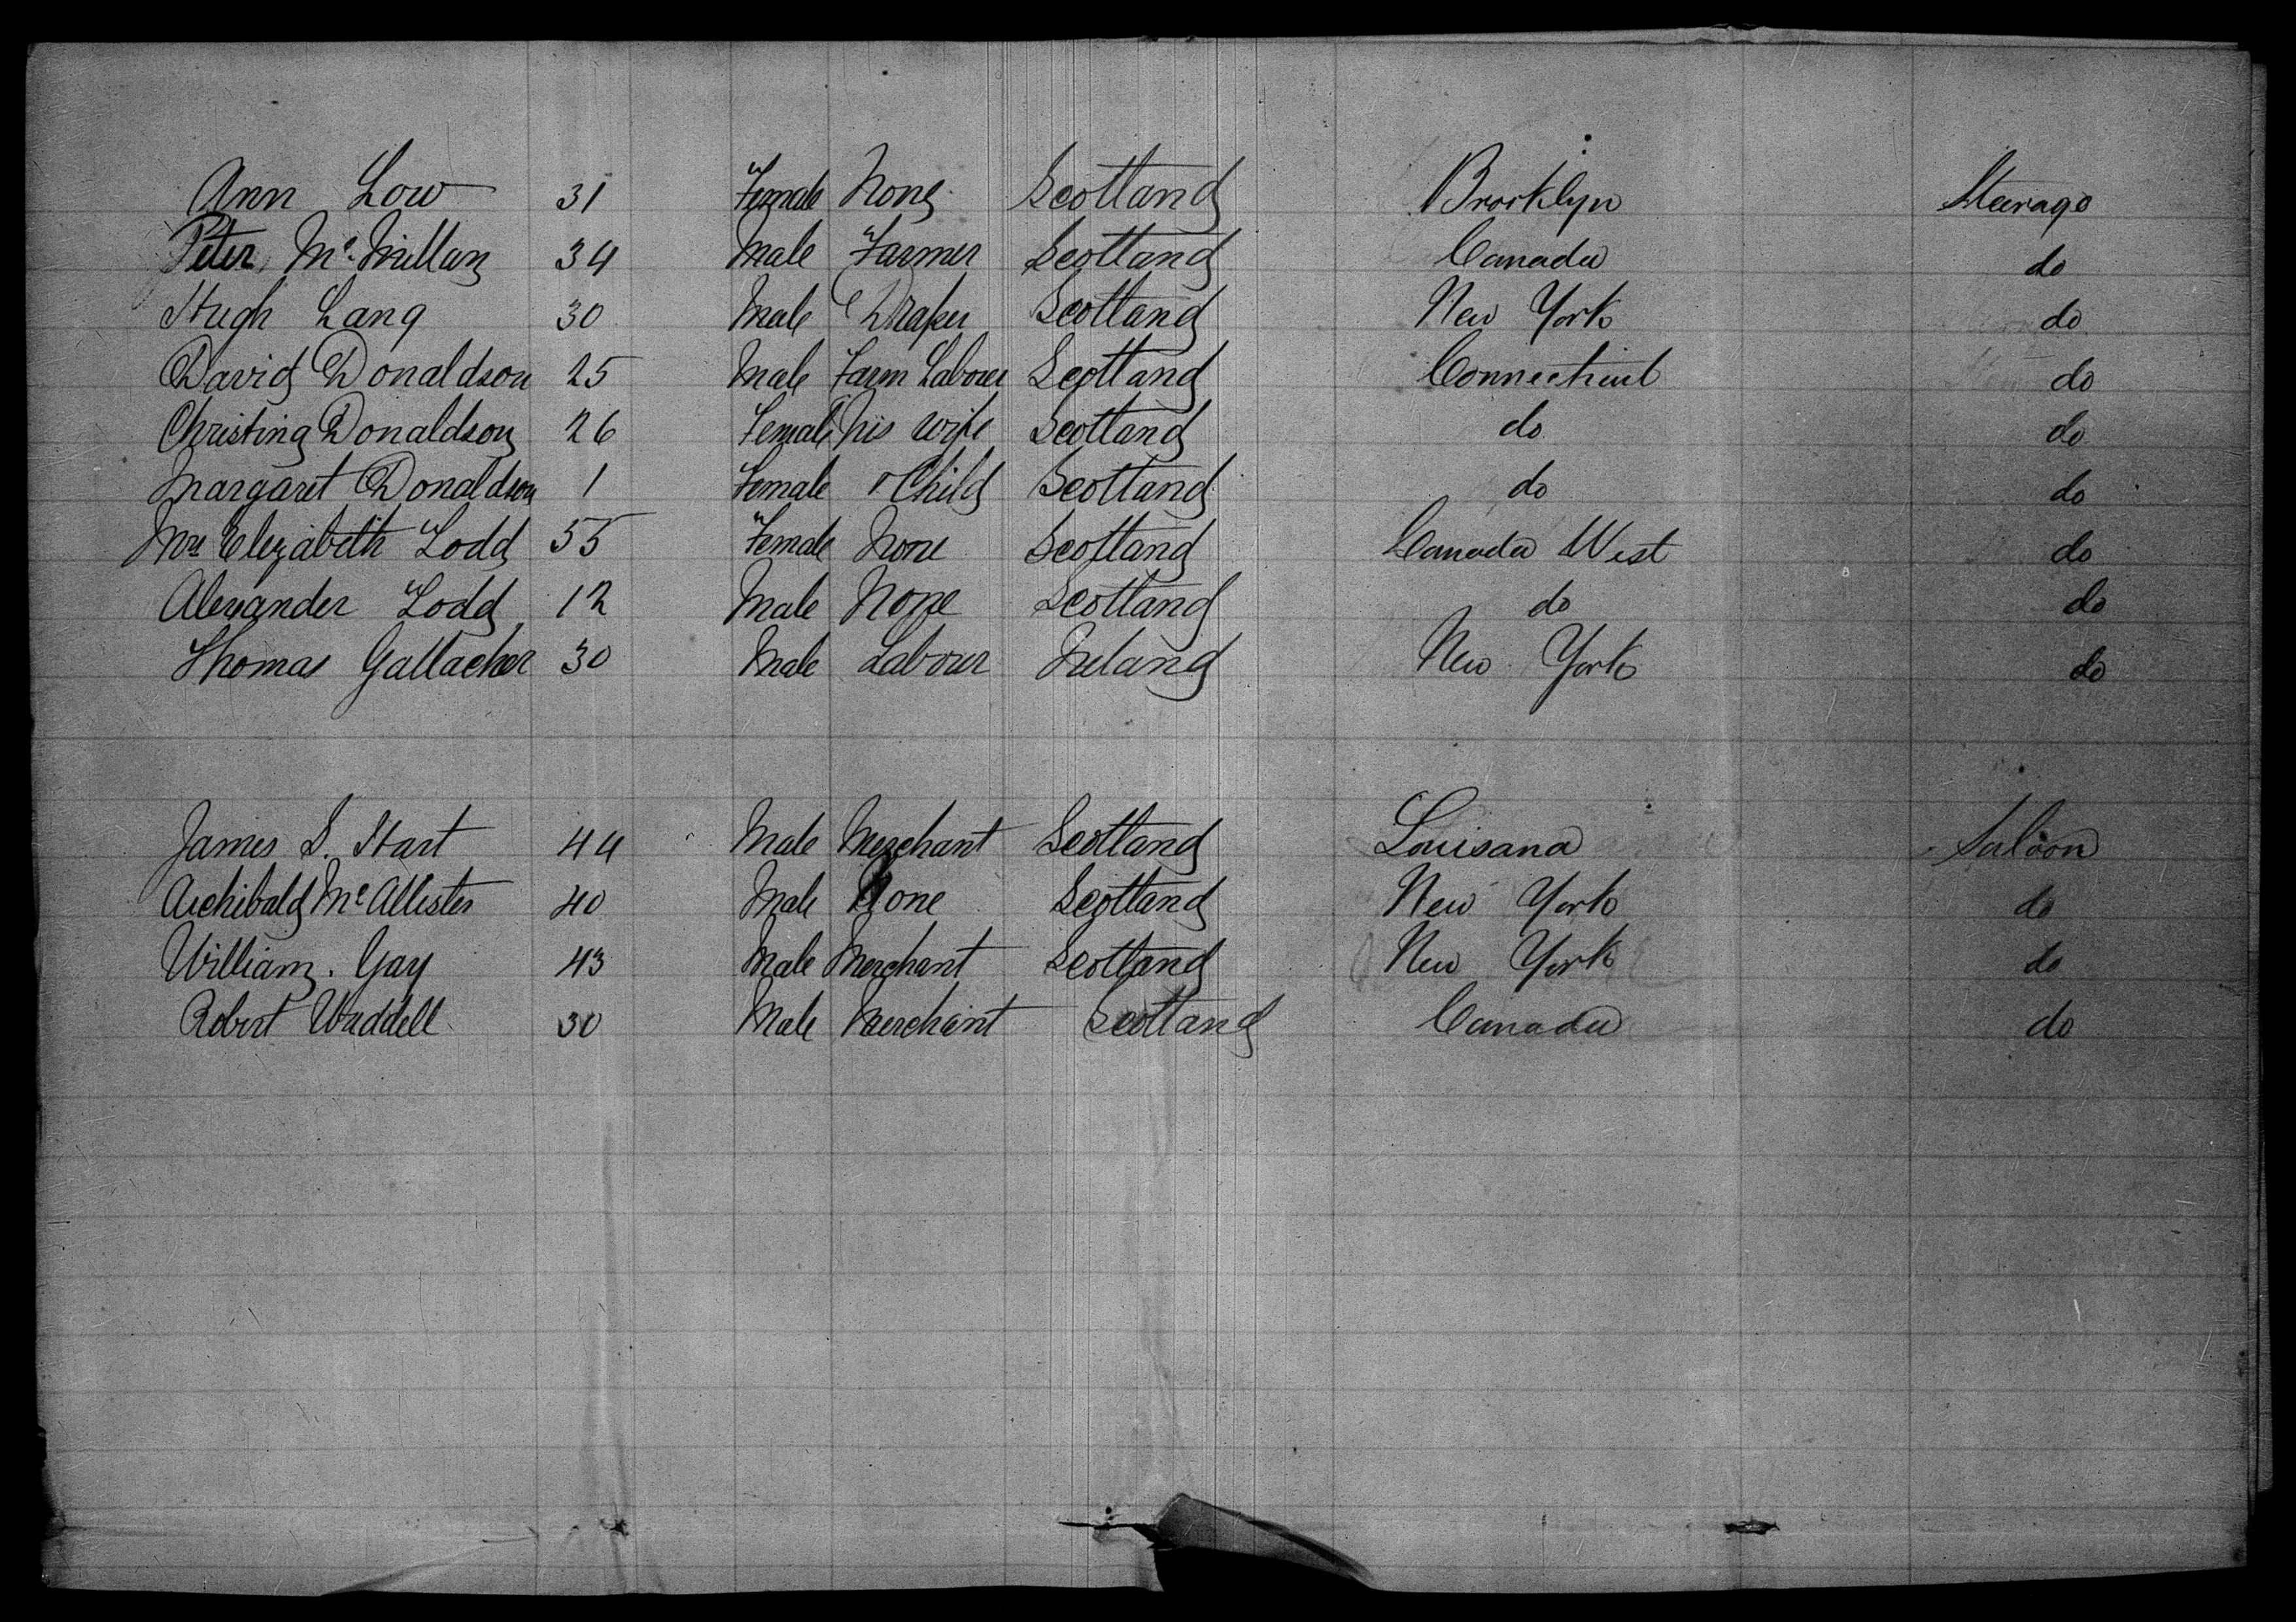 Ann Low 31 Female None Scotland Brooklyn Steerage
Peter McMillan 34 Male Farmer Scotland Canada do
Hugh Lang 30 Male Draper Scotland New York do
David Donaldson 25 Male Farm Labourer Scotland Connecticut do
Christina Donaldson 26 Female his wife Scotland do do
Margaret Donaldson 1 Female " Child Scotland do do
Mrs Elizabeth Todd 55 Female None Scotland Canada West do
Alexander Todd 12 Male None Scotland do do
Thomas Gallacher 30 Male Labourer Ireland New York do
James S. Hart 44 Male Merchant Scotland Louisana Saloon
Archibald McAllister 40 Male None Scotland New York do
William Gay 43 Male Merchant Scotland New York do
Robert Waddell 30 Male Merchant Scotland Canada do